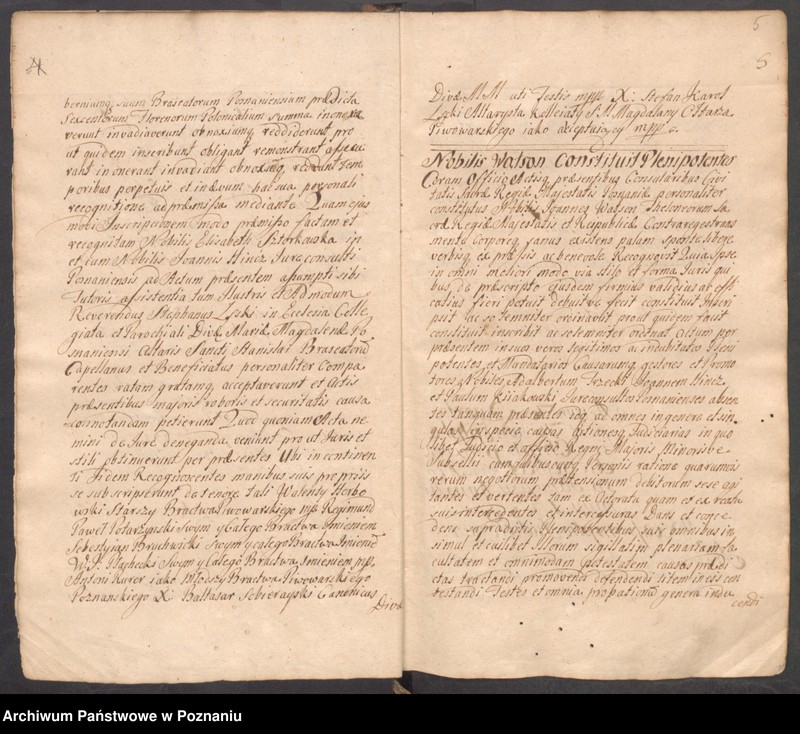 4
berniumq suum Braseatorum Posnaniensium prædicta
Sexcentorum Florenorum Polonicalium summa inonera
verunt invadiaverunt obnoxiumq reddiderunt pro
ut quidem inscribunt obligant remonstrant assecu
rant inonerant invadiant obnoxiumq reddunt tem
poribus perpetuis et in ævum hac sua personali
recognitione ad præmissa mediante Quam ejus
modi Inscriptionem modo præmisso factam et
recognitam Nobilis Elisabeth Sztorkowska in
et cum Nobilis Joannis Hincz Jurisconsulti
Posnaniensis ad Actum præsentem assumpti sibi
Tutoris assistentia tum Illustris et Admodum
Reverendus Stephanus Lski in Ecclesia Colle
giata et Parochiali Divæ Mariæ Magdalenæ Po
snaniensi Altaris Sancti Stanislai Braseatorum
Capellanus et Beneficiatus personaliter compa
rentes ratam gratamq acceptaverunt et Actis
præsentibus majoris roboris et securitatis causa
connotandam petierunt Quod quoniam Acta ne
mini de Jure deneganda veniunt pro ut Juris et
stili obtinuerunt per præsentes Ubi in continen
ti Fidem Recognoscentes manibus suis propriis
se subscripserunt de tenore tali Walenty Herbo
wski Starszy Bractwa Piwowarskiego mp Regimund
Paweł Potarzynski swym y Całego Bractwa Imieniem
Sebestyian Bruhwicki Swym y całego Bractwa Imienie
W. P. Haphecki Swym y Całego Bractwa Imieniem mp
Antoni Kurer iako Młodszy Bractwa Piwowarskiego
Poznanskiego X: Baltasar Sebierayski Canonicus
Divæ
5
5
Divæ M M uti Testis mpp X: Stefan Karol
Lski Altarysta Kollegiaty S. M Magdalany Ołtarza
Piwowarskiego iako akceptuiący mpp
Nobilis Watson Constituit Plenipotentes
Coram Officio Actisq præsentibus Consularibus Civi
tatis Sacræ Regiæ Majestatis Posnaniæ personaliter
constitutus Nobilis Joannes Watson Theloneorum Sa
cræ Regiæ Majestatis et Reipublicæ Contraregestrans
mente Corporeq sanus existens palam sponte libere
verbisq expressis ac benevole Recognovit Quia Ipse
in omni meliori modo via stilo et forma Juris qui
bus de præscripto ejusdem firmius validius ac effi
catius fieri potuit debuitve fecit constituit Inscri
psit ac solemniter ordinavit prout quidem facit
constituit inscribit ac solemniter ordinat Actum per
præsentem in suos veros legitimos ac indubitatos Pleni
potentes et Mandatarios Causarumq gestores et Promo
tores Nobiles Adalbertum Trzecki Joannem Hincz
et Paulum Kiiakowski Jureconsultos Posnanienses absen
tes tanquam præsentes idq ad omnes in genere et sin
gulas in specie causas Actionesq Judiciarias in quo
libet Judicio et officio Regni Majoris Minorisve
Subsellii cum quibuscunq Personis ratione quarumvis
rerum negotiorum prætensionum debitorum sese agi
tantes et vertentes tam ex Actoratu quam et ex reatu
suis intercedentes et intercessuras Dans et conce
dens supradictis Plenipotentibus suis omnibus in
simul et cuilibet Illorum sigillatim plenariam fa
cultatem et omnimodam potestatem causas prædi
ctas tractandi promovendi defendendi litem in iis con
testandi Testes et omnia probationum genera indu
cendi
Archiwum Państwowe w Poznaniu